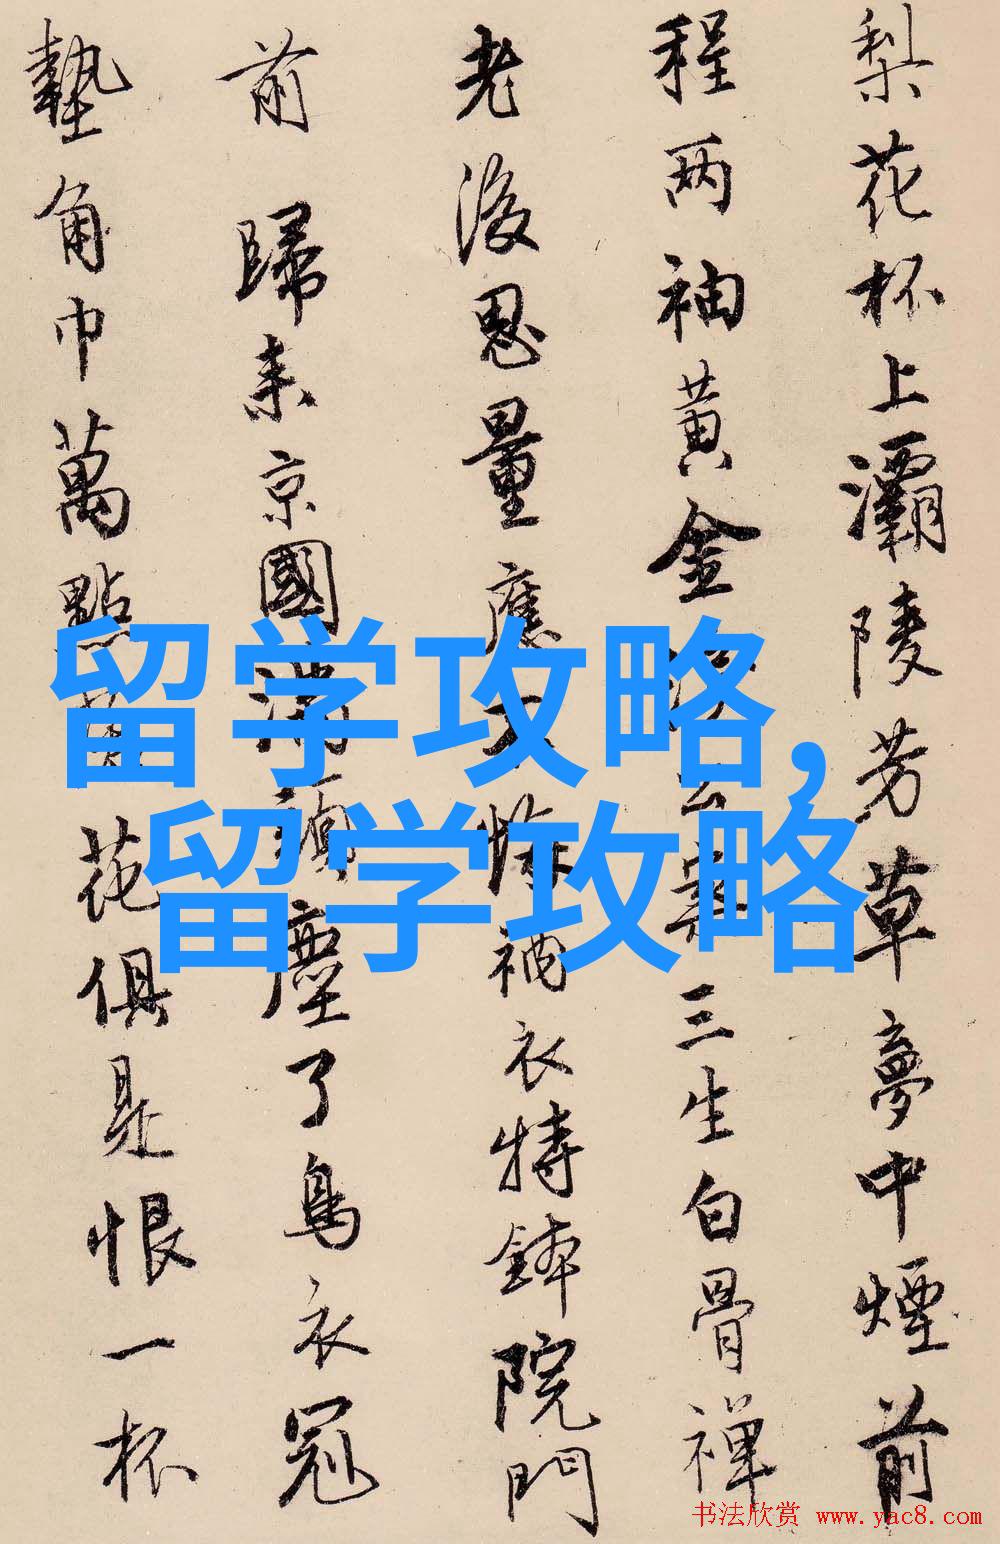 梨花杯上灞陵芳草夢中煙前
程两袖黄金三生白骨禅
老後思量應不悔衲衣持鉢院門
前 歸来京國满頭塵了烏衣冠
墊角巾萬點花俱是恨一杯
留学攻略,
留学攻略
书法欣赏 www.yac8.com